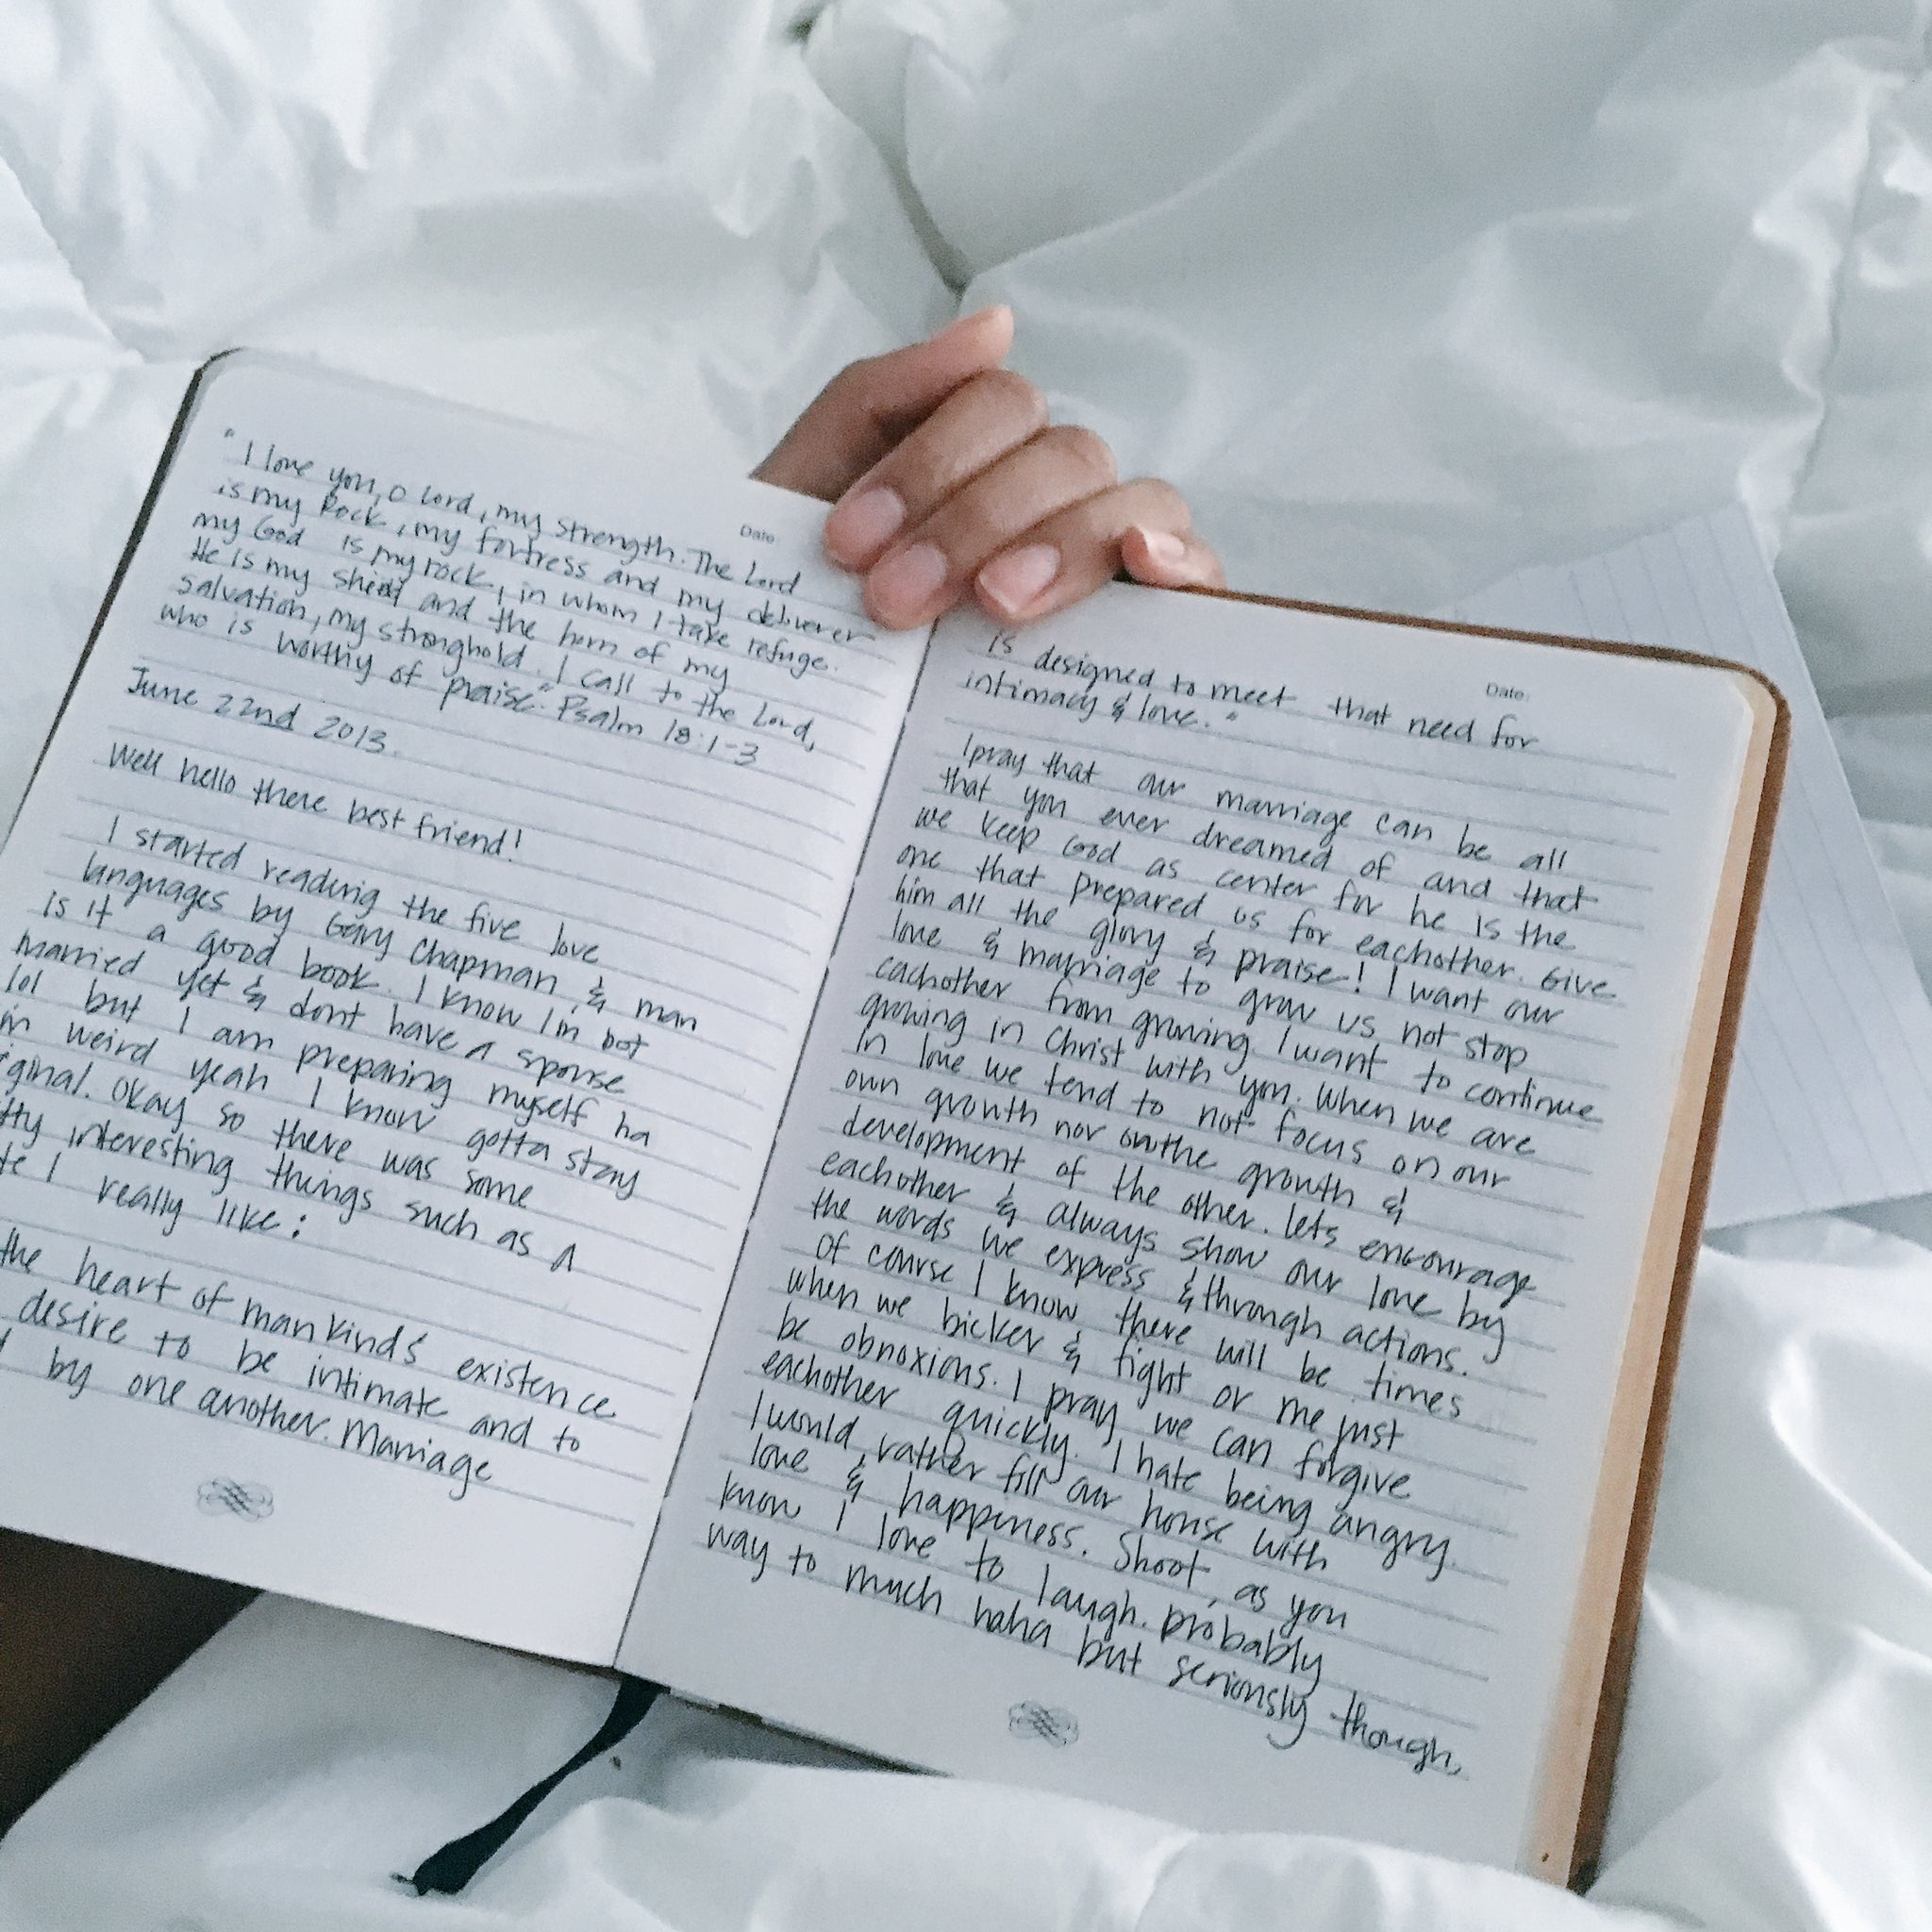 Date:
" I love you, O Lord, my strength. The Lord
is my Rock, my fortress and my deliverer
my God is my rock, in whom I take refuge.
He is my shield and the horn of my
salvation, my stronghold. I call to the Lord,
who is worthy of praise". Psalm 18:1-3
June 22nd 2013.
Well hello there best friend!
I started reading the five love
languages by Gary Chapman & man
is it a good book. I know I'm not
married yet & dont have a spouse
lol but I am preparing myself ha
weird yeah I know gotta stay
Okay so there was some
interesting things such as a
I really like:
the heart of mankind's existence
desire to be intimate and to
by one another. Marriage
Date:
is designed to meet that need for
intimacy & love."
I pray that our marriage can be all
that you ever dreamed of and that
we keep God as center for he is the
one that prepared us for eachother. Give
him all the glory & praise! I want our
love & marriage to grow us not stop
eachother from growing I want to continue
growing in Christ with you. When we are
In love we tend to not focus on our
own growth nor on the growth &
development of the other. lets encourage
eachother & always show our love by
the words we express & through actions.
Of course I know there will be times
when we bicker & fight or me just
be obnoxious. I pray we can forgive
eachother quickly. I hate being angry.
I would rather fill our house with
love & happiness. Shoot, as you
know I love to laugh. probably
way to much haha but seriously though,